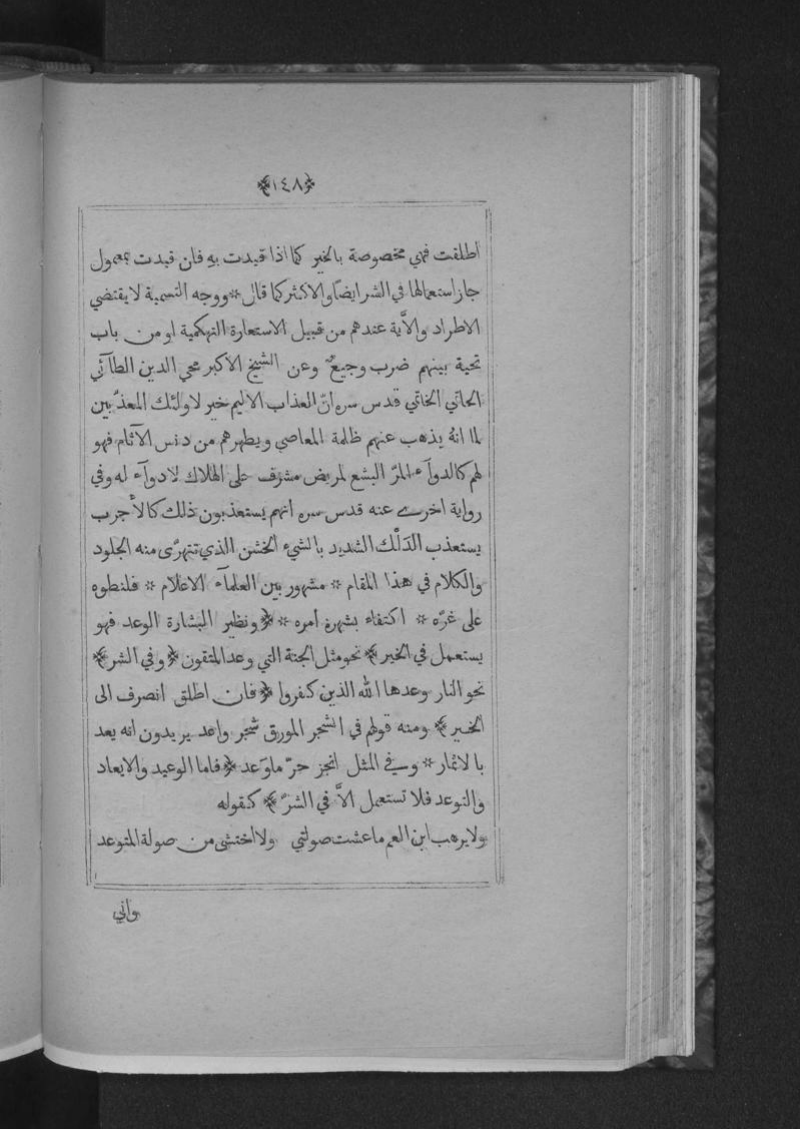 ﴿١٤٨﴾
اطلقت فهي مخصوصة بالخير كما اذا قيدت به فان قيدت بمعمول
جاز استعمالها في الشر ايضًا والاكثر كما قال * ووجه التسمية لا يقتضي
الاطراد والآية عندهم من قبيل الاستعارة التهكمية او من باب
تحية بينهم ضرب وجيعٌ وعن الشيخ الاكبر محي الدين الطآئي
الحاتمي الخاتمي قدس سره انّ العذاب الاليم خير لاولئك المعذّبين
لما انهُ يذهب عنهم ظلمة المعاصي ويطهرهم من دنس الآثام فهو
لهم كالدوآء المرّ البشع لمريض مشرف على الهلاك لا دوآء له وفي
رواية اخرى عنه قدس سره انهم يستعذبون ذلك كالأجرب
يستعذب الدَلْك الشديد بالشيء الخشن الذي تتهرّى منه الجلود
والكلام في هذا المقام * مشهور بين العلمآء الاعلام * فلنطوه
على غرّه * اكتفاء بشهرة امره * ﴿ونظير البشارة الوعد فهو
يستعمل في الخير﴾ نحو مثل الجنة التي وعد المتقون ﴿وفي الشر﴾
نحو النار وعدها الله الذين كفروا ﴿فان اطلق انصرف الى
الخير﴾ ومنه قولهم في الشجر المورق شجر واعد يريدون انه يعد
بالاثمار * وفي المثل انجز حرّ ما وَعد ﴿فاما الوعيد والايعاد
والتوعد فلا تستعمل الاَّ في الشرّ﴾ كقوله
ولا يرهب ابن العم ما عشت صولتي ولا اختشي من صولة المتوعد
واني